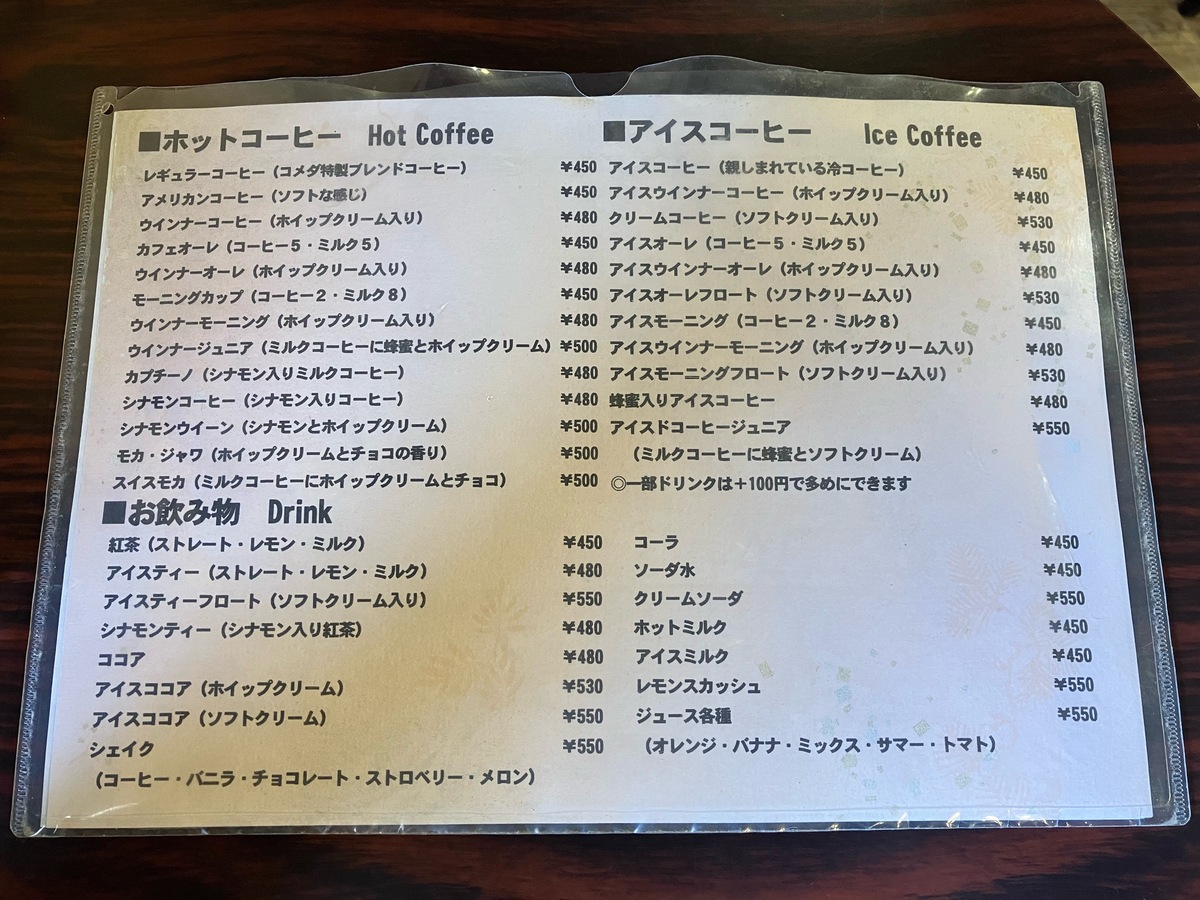 ■ホットコーヒー Hot Coffee
レギュラーコーヒー（コメダ特製ブレンドコーヒー） ¥450
アメリカンコーヒー（ソフトな感じ） ¥450
ウインナーコーヒー（ホイップクリーム入り） ¥480
カフェオーレ（コーヒー５・ミルク５） ¥450
ウインナーオーレ（ホイップクリーム入り） ¥480
モーニングカップ（コーヒー２・ミルク８） ¥450
ウインナーモーニング（ホイップクリーム入り） ¥480
ウインナージュニア（ミルクコーヒーに蜂蜜とホイップクリーム） ¥500
カプチーノ（シナモン入りミルクコーヒー） ¥480
シナモンコーヒー（シナモン入りコーヒー） ¥480
シナモンウイーン（シナモンとホイップクリーム） ¥500
モカ・ジャワ（ホイップクリームとチョコの香り） ¥500
スイスモカ（ミルクコーヒーにホイップクリームとチョコ） ¥500
■アイスコーヒー Ice Coffee
アイスコーヒー（親しまれている冷コーヒー） ¥450
アイスウインナーコーヒー（ホイップクリーム入り） ¥480
クリームコーヒー（ソフトクリーム入り） ¥530
アイスオーレ（コーヒー５・ミルク５） ¥450
アイスウインナーオーレ（ホイップクリーム入り） ¥480
アイスオーレフロート（ソフトクリーム入り） ¥530
アイスモーニング（コーヒー２・ミルク８） ¥450
アイスウインナーモーニング（ホイップクリーム入り） ¥480
アイスモーニングフロート（ソフトクリーム入り） ¥530
蜂蜜入りアイスコーヒー ¥480
アイスドコーヒージュニア ¥550
（ミルクコーヒーに蜂蜜とソフトクリーム）
◎一部ドリンクは＋100円で多めにできます
■お飲み物 Drink
紅茶（ストレート・レモン・ミルク） ¥450
アイスティー（ストレート・レモン・ミルク） ¥480
アイスティーフロート（ソフトクリーム入り） ¥550
シナモンティー（シナモン入り紅茶） ¥480
ココア ¥480
アイスココア（ホイップクリーム） ¥530
アイスココア（ソフトクリーム） ¥550
シェイク ¥550
（コーヒー・バニラ・チョコレート・ストロベリー・メロン）
コーラ ¥450
ソーダ水 ¥450
クリームソーダ ¥550
ホットミルク ¥450
アイスミルク ¥450
レモンスカッシュ ¥550
ジュース各種 ¥550
（オレンジ・バナナ・ミックス・サマー・トマト）